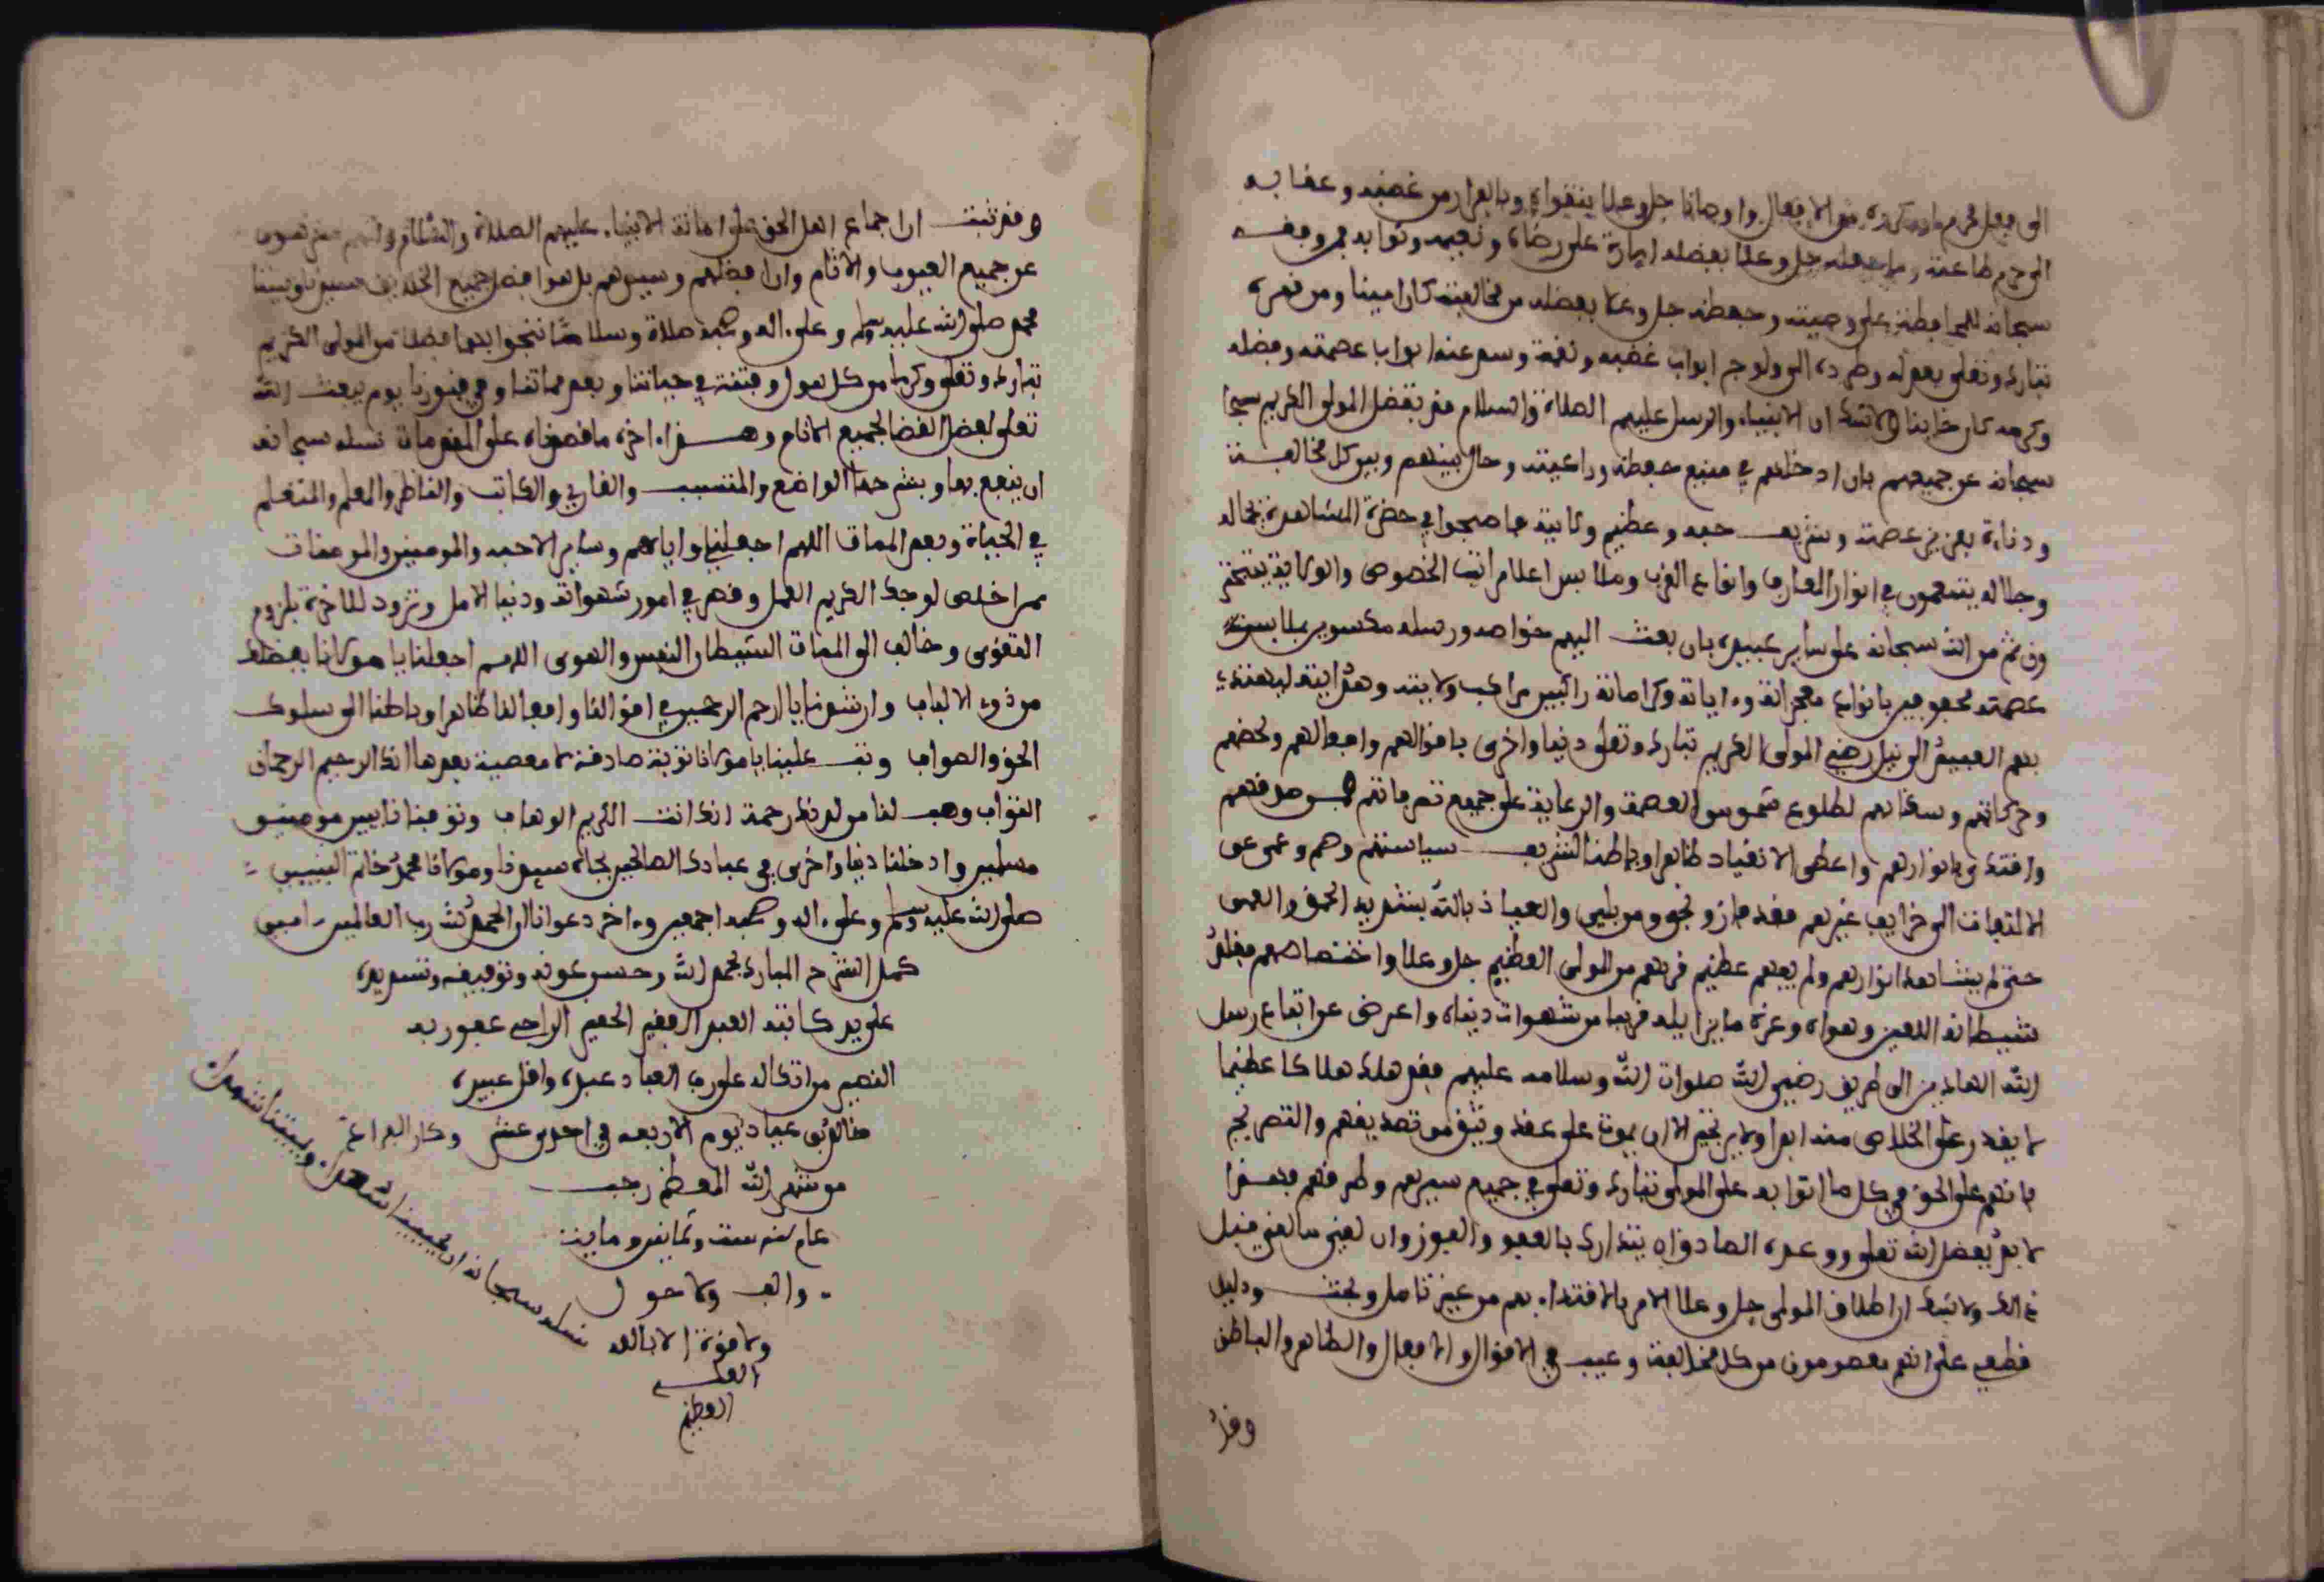 الى فعل محرم او مكروه من الافعال واوصانا جل وعلا بتقواه وبالفرار من غضبه وعقابه
الى حرم طاعته جل وعلا بفضله امارة على رضاه ونعيمه وثوابه فمن وفقه
سبحانه للمحافظة على وصيته وحفظه جل وعلا بفضله من مخالفته كان امينا ومن قهره
تبارك وتعلى بعدله وطرده الى ولوج ابواب غضبه ونقمه وسد عنه ابواب عصمته وفضله
وكرمه كان خاينا ولا شك ان الانبياء والرسل عليهم الصلاة والسلام قد تفضل المولى الكريم سبحا
سبحانه على جميعهم بان ادخلهم في منيع حفظه ورعايته وحال بينهم وبين كل مخالفة
ودناءة بعزيز عصمته وشريف حبه وعظيم ولايته فاصبحوا في حضرة المشاهدة لجماله
وجلاله يتنعمون في انوار المعارف وانواع القرب وملابس اعلا مراتب الخصوص والولاية
ومن ثم من الله سبحانه على ساير عبيده بان بعث اليهم خواصه ورسله مكسوين بملابس
عصمته محفوفين بانواع معجزاته وءاياته وكراماته راكبين مراكب ولايته وهدايته ليهتدي
بهم العبيد الى نيل رضى المولى الكريم تبارك وتعلى دنيا واخرى باقوالهم وافعالهم
وحركاتهم وسكناتهم لطلوع شموس العصمة والرعاية على جميع تصرفاتهم فمن صدقهم
واقتدى بانوارهم واعطى الانقياد ظاهرا وباطنا لشريف سياستهم وهم وعمى عن
الالتفات الى خرايف غيرهم فقد فاز ونجى ومن بلي والعياذ بالله بشديد الحمق والعمى
حتى لم يشاهد انوارهم ولم يفهم عظيم قربهم من المولى العظيم جل وعلا واختصاصهم فقلد
شيطانه اللعين وهواه وغره ما يزايله قريبا من شهوات دنياه واعرض عن اتباع رسل
الله الهادين الى طريق رضى الله صلوات الله وسلامه عليهم فقد هلك هلاكا عظيما
لا يقدر على الخلاص منه ابدا ولا يرتجى الا ان يموت على عقد وثيق من تصديقهم والتصريح
بانهم على الحق في كل ما اتوا به على المولى تبارك وتعلى في جميع سيرهم وطرقهم فهذا
لا بد بفضل الله تعلى ووعده الصادق ان يتدارك بالعفو والفوز وان لقي ما لقي قبل
ذالك ولا شك ان اطلاق المولى جل وعلا الامر بالاقتداء بهم من غير تامل وبحث ودليل
قطعي على انهم معصومون من كل مخالفة وعيب في الاقوال والافعال والظاهر والباطن
وقد
وقد ثبت ان اجماع اهل الحق على امانة الانبياء عليهم الصلاة والسلام وانهم منزهون
عن جميع العيوب والاثام وان افضلهم وسيدهم بل هو افضل جميع الخلايق سيدنا ونبينا
محمد صلى الله عليه وسلم وعلى ءاله وصحبه صلاة وسلاما ننجوا بهما فضلا من المولى الكريم
تبارك وتعلى وكرما من كل هول وفتنة في حياتنا وبعد مماتنا وفي قبورنا يوم يبعث الله
تعلى لفصل القضا لجميع الانام وهذا ءاخر ما قصدناه على المقدمات نسله سبحانه
ان ينفع بها وبشرحها الواضع والمتسبب والقاري والكاتب والناظر والمعلم والمتعلم
في الحياة وبعد الممات اللهم اجعلني واياهم وساير الاحبه والمومنين والمومنات
ممن اخلص لوجهك الكريم العمل وقصر في امور شهواته ودنيا الامل وتزود للاخرة بلزوم
التقوى وخالف الى الممات الشيطان والنفس والهوى اللهم اجعلنا يا مولانا بفضلك
من ذوي الالباب وارشدنا يا ارحم الرحمين في اقوالنا وافعالنا ظاهرا وباطنا الى سلوك
الحق والصواب وتب علينا يا مولانا توبة صادقة لا معصية بعدها انك الرحيم الرحمان
التواب وهب لنا من لدنك رحمة انك انت الكريم الوهاب وتوفنا تايبين مومنين
مسلمين وادخلنا دنيا واخرى في عبادك الصالحين بجاه سيدنا ومولانا محمد خاتم النبيين
صلى الله عليه وسلم وعلى ءاله وصحبه اجمعين وءاخر دعوانا ان الحمد لله رب العالمين امين
كمل الشرح المبارك بحمد الله وحسن عونه وتوفيقه وتسديده
على يد كاتبه العبد الفقير الحقير الراجي عفو ربه
القصير من اتكاله على رب العباد عبده واقل عبيده
عياد يوم الاربعه في احدى عشر وكان الفراغ
من شهر الله المعظم رجب
عام سنه ست وثمانين وماية
والف ولا حول
ولا قوة الا بالله
العلي
العظيم
نسله سبحانه ان يحيينا